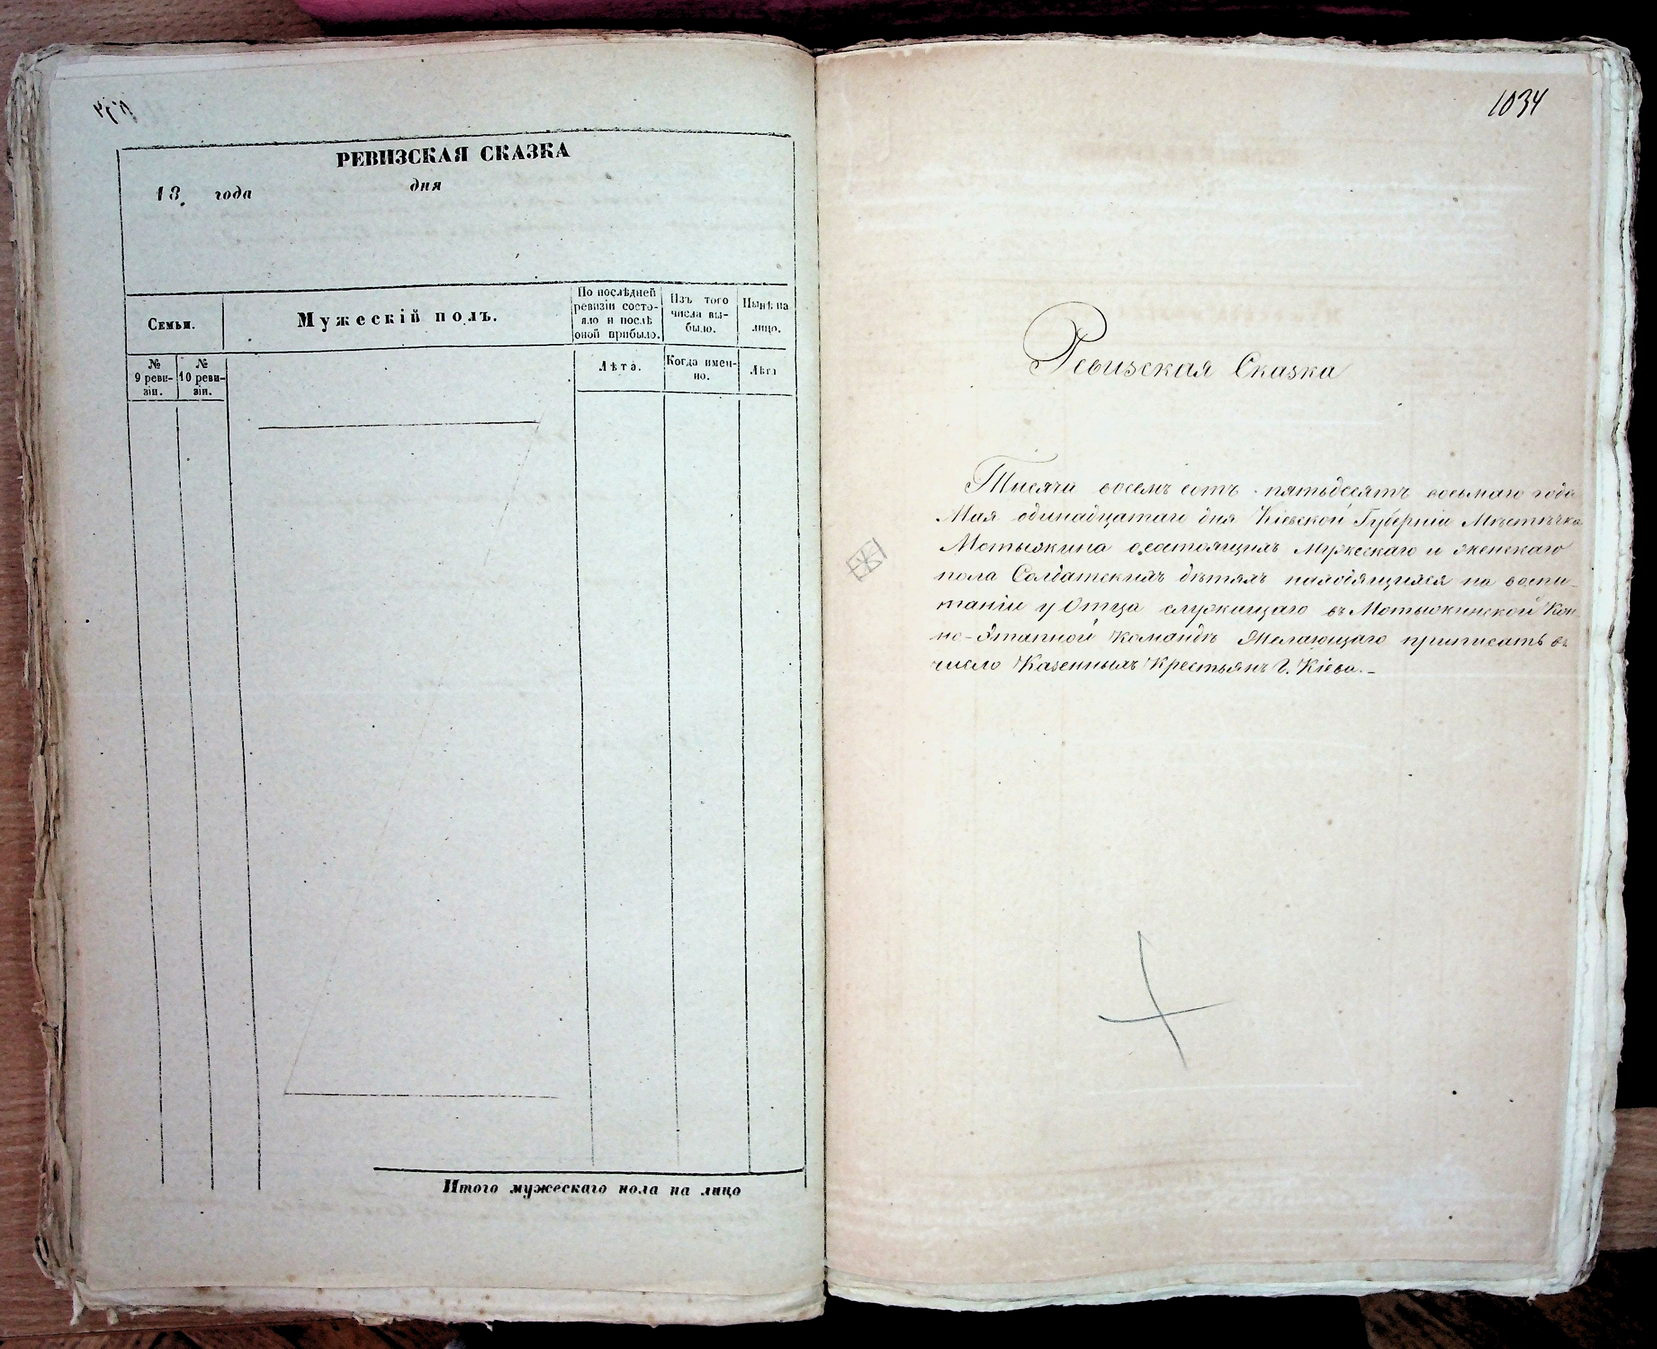 РЕВИЗСКАЯ СКАЗКА
18 года дня
Семьи.
Мужескій полъ.
По послѣдней
ревизіи состо-
яло и послѣ
оной прибыло.
Изъ того
числа вы-
было.
Нынѣ на
лицо.
№
9 реви-
зіи.
№
10 реви-
зіи.
Лѣта.
Когда имен-
но.
Лѣта
Итого мужескаго пола на лицо
1034
Ревизская Сказка
Тысяча восемь сотъ пятьдесятъ восьмаго года
Мая одинадцатаго дня Кіевской Губерніи Мѣстѣчка
Мотыжина о состоящихъ мужескаго и женскаго
пола Солдатскихъ дѣтяхъ находящихся на воспи-
таніи у Отца служащаго въ Мотыжинской Кон-
но-Этапной Командѣ Желающаго приписать въ
число Казенныхъ Крестьянъ Г. Кіева.